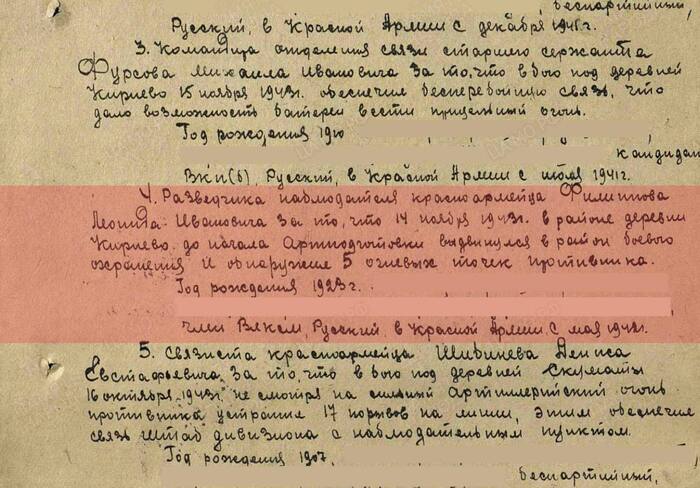 беспартийный,
Русский, в Красной Армии с декабря 1941г.
3. Командира отделения связи старшего сержанта
Фурсова Михаила Ивановича за то, что в бою под деревней
Кириево 15 ноября 1943г. обеспечил бесперебойную связь, что
дало возможность батареи вести прицельный огонь.
Год рождения 19
кандидат
ВКП(б), Русский, в Красной Армии с июля 1941г.
4. Разведчика наблюдателя красноармейца Филиппова
Ивановича за то, что 14 ноября 1943г. в районе деревни
Кириево до начала Артподготовки выдвинулся в район боевого
охранения и обнаружил 5 огневых точек противника.
Год рождения 1923г.
член ВЛКСМ, Русский, в Красной Армии с мая 1942г.
5. Связиста красноармейца Дениса
Евстафьевича за то, что в бою под деревней
16 октября 1943г. не смотря на сильный артиллерийский огонь
противника устранил 17 порывов на линии, этим обеспечив
связь штаб дивизиона с наблюдательным пунктом.
Год рождения 1907,
беспартийный,